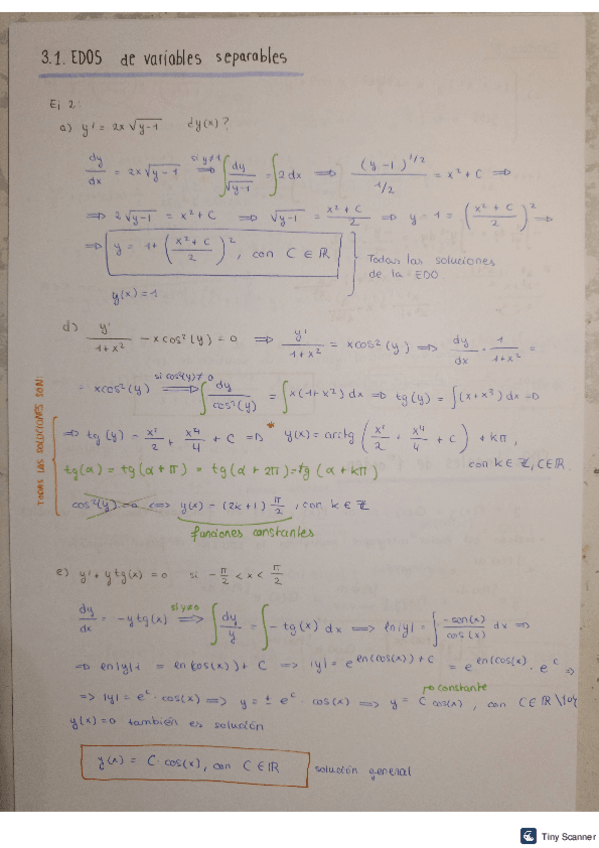 3.1. EDOS de variables separables
Ej 2:
a) y' = 2x √y-1 dy(x)?
dy/dx = 2x√y-1 si y≠1 ⟹ ∫ dy/√y-1 = ∫ 2 dx ⟹ (y-1)^1/2 / 1/2 = x² + C ⟹
⟹ 2√y-1 = x² + C ⟹ √y-1 = x² + C / 2 ⟹ y - 1 = (x² + C / 2)² ⟹
⟹ y = 1 + (x² + C / 2)², con C ∈ ℝ
Todas las soluciones
de la EDO
y(x) = 1
d) y' / 1+x² - x cos²(y) = 0 ⟹ y' / 1+x² = x cos²(y) ⟹ dy/dx · 1 / 1+x² =
= x cos²(y) si cos²(y) ≠ 0 ⟹ ∫ dy / cos²(y) = ∫ x(1+x²) dx ⟹ tg(y) = ∫(x+x³) dx ⟹
TODAS LAS SOLUCIONES SON:
⟹ tg(y) = x²/2 + x⁴/4 + C ⟹ * y(x) = arctg (x²/2 + x⁴/4 + C) + kπ,
con k ∈ ℤ, C ∈ ℝ.
tg(α) = tg(α + π) = tg(α + 2π) = tg(α + kπ)
cos²(y) = 0 ⟺ y(x) = (2k+1) π/2, con k ∈ ℤ
funciones constantes
e) y' + y tg(x) = 0 si -π/2 < x < π/2
dy/dx = -y tg(x) si y≠0 ⟹ ∫ dy/y = ∫ - tg(x) dx ⟹ ln|y| = ∫ -sen(x) / cos(x) dx ⟹
⟹ ln|y| = ln(cos(x)) + C ⟹ |y| = e^ln(cos(x)) + C = e^ln(cos(x)) · e^C ⟹
constante
⟹ |y| = e^C · cos(x) ⟹ y = ± e^C · cos(x) ⟹ y = C cos(x), con C ∈ ℝ \ {0}
y(x) = 0 también es solución
y(x) = C · cos(x), con C ∈ ℝ solución general
Tiny Scanner